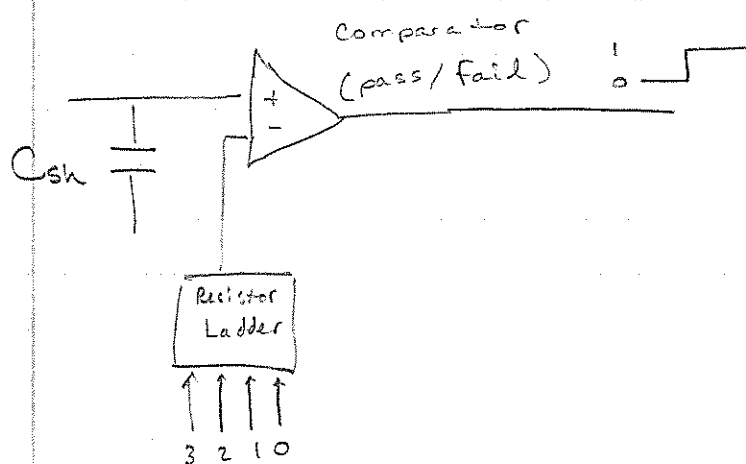 Comparator
(pass/fail)
1
0
+
-
Csh
Resistor
Ladder
3 2 1 0